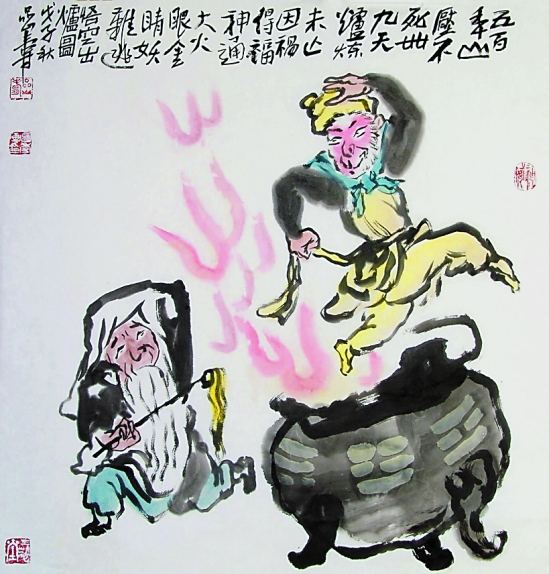 五百
年山
壓不
死卌
九天
爐煉
未止
因禍
得福
神通
大火
眼金
睛妖
難逃
悟空出
爐圖
戊子秋